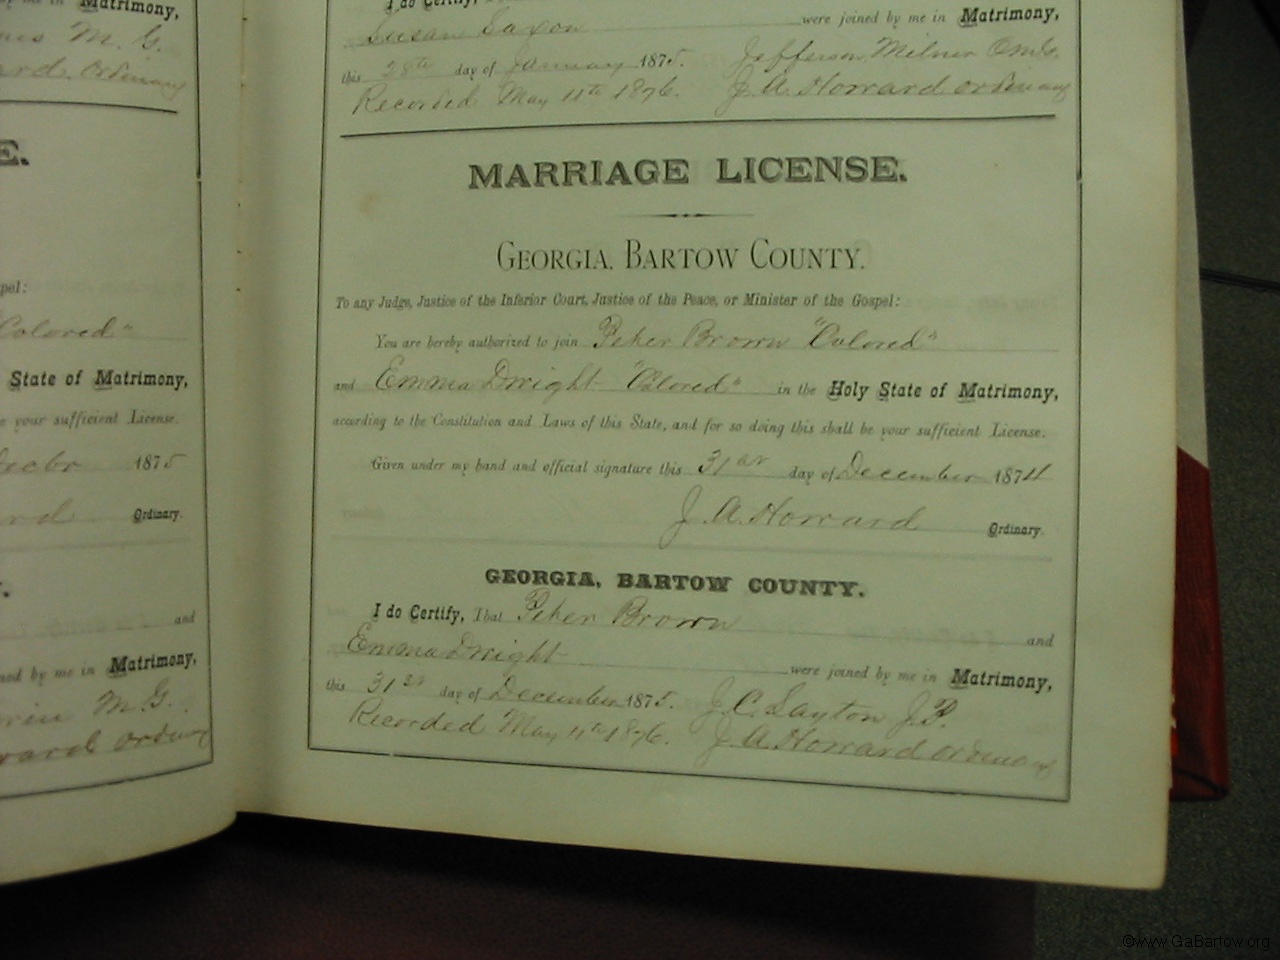 Matrimony,
M. G.
ard Ordinary
E.
pel:
Colored"
State of Matrimony,
e your sufficient License.
1875
rd Ordinary.
and
ned by me in Matrimony,
M.G.
ward ordinary
I do Certify,
Susan Saxon were joined by me in Matrimony,
this 28th day of January 1875. Jefferson Milner
Recorded May 11th 1876. J. A. Howard ordinary
MARRIAGE LICENSE.
GEORGIA, BARTOW COUNTY.
To any Judge, Justice of the Inferior Court, Justice of the Peace, or Minister of the Gospel:
You are hereby authorized to join Peter Brown "Colored"
and Emma Dwight "Colored" in the Holy State of Matrimony,
according to the Constitution and Laws of this State, and for so doing this shall be your sufficient License.
Given under my hand and official signature this 31st day of December 1874
J. A. Howard Ordinary.
GEORGIA, BARTOW COUNTY.
I do Certify, That Peter Brown and
Emma Dwight were joined by me in Matrimony,
this 31st day of December 1875. J. C. Layton J.P.
Recorded May 11th 1876. J. A. Howard ordinary
©www.GaBartow.org